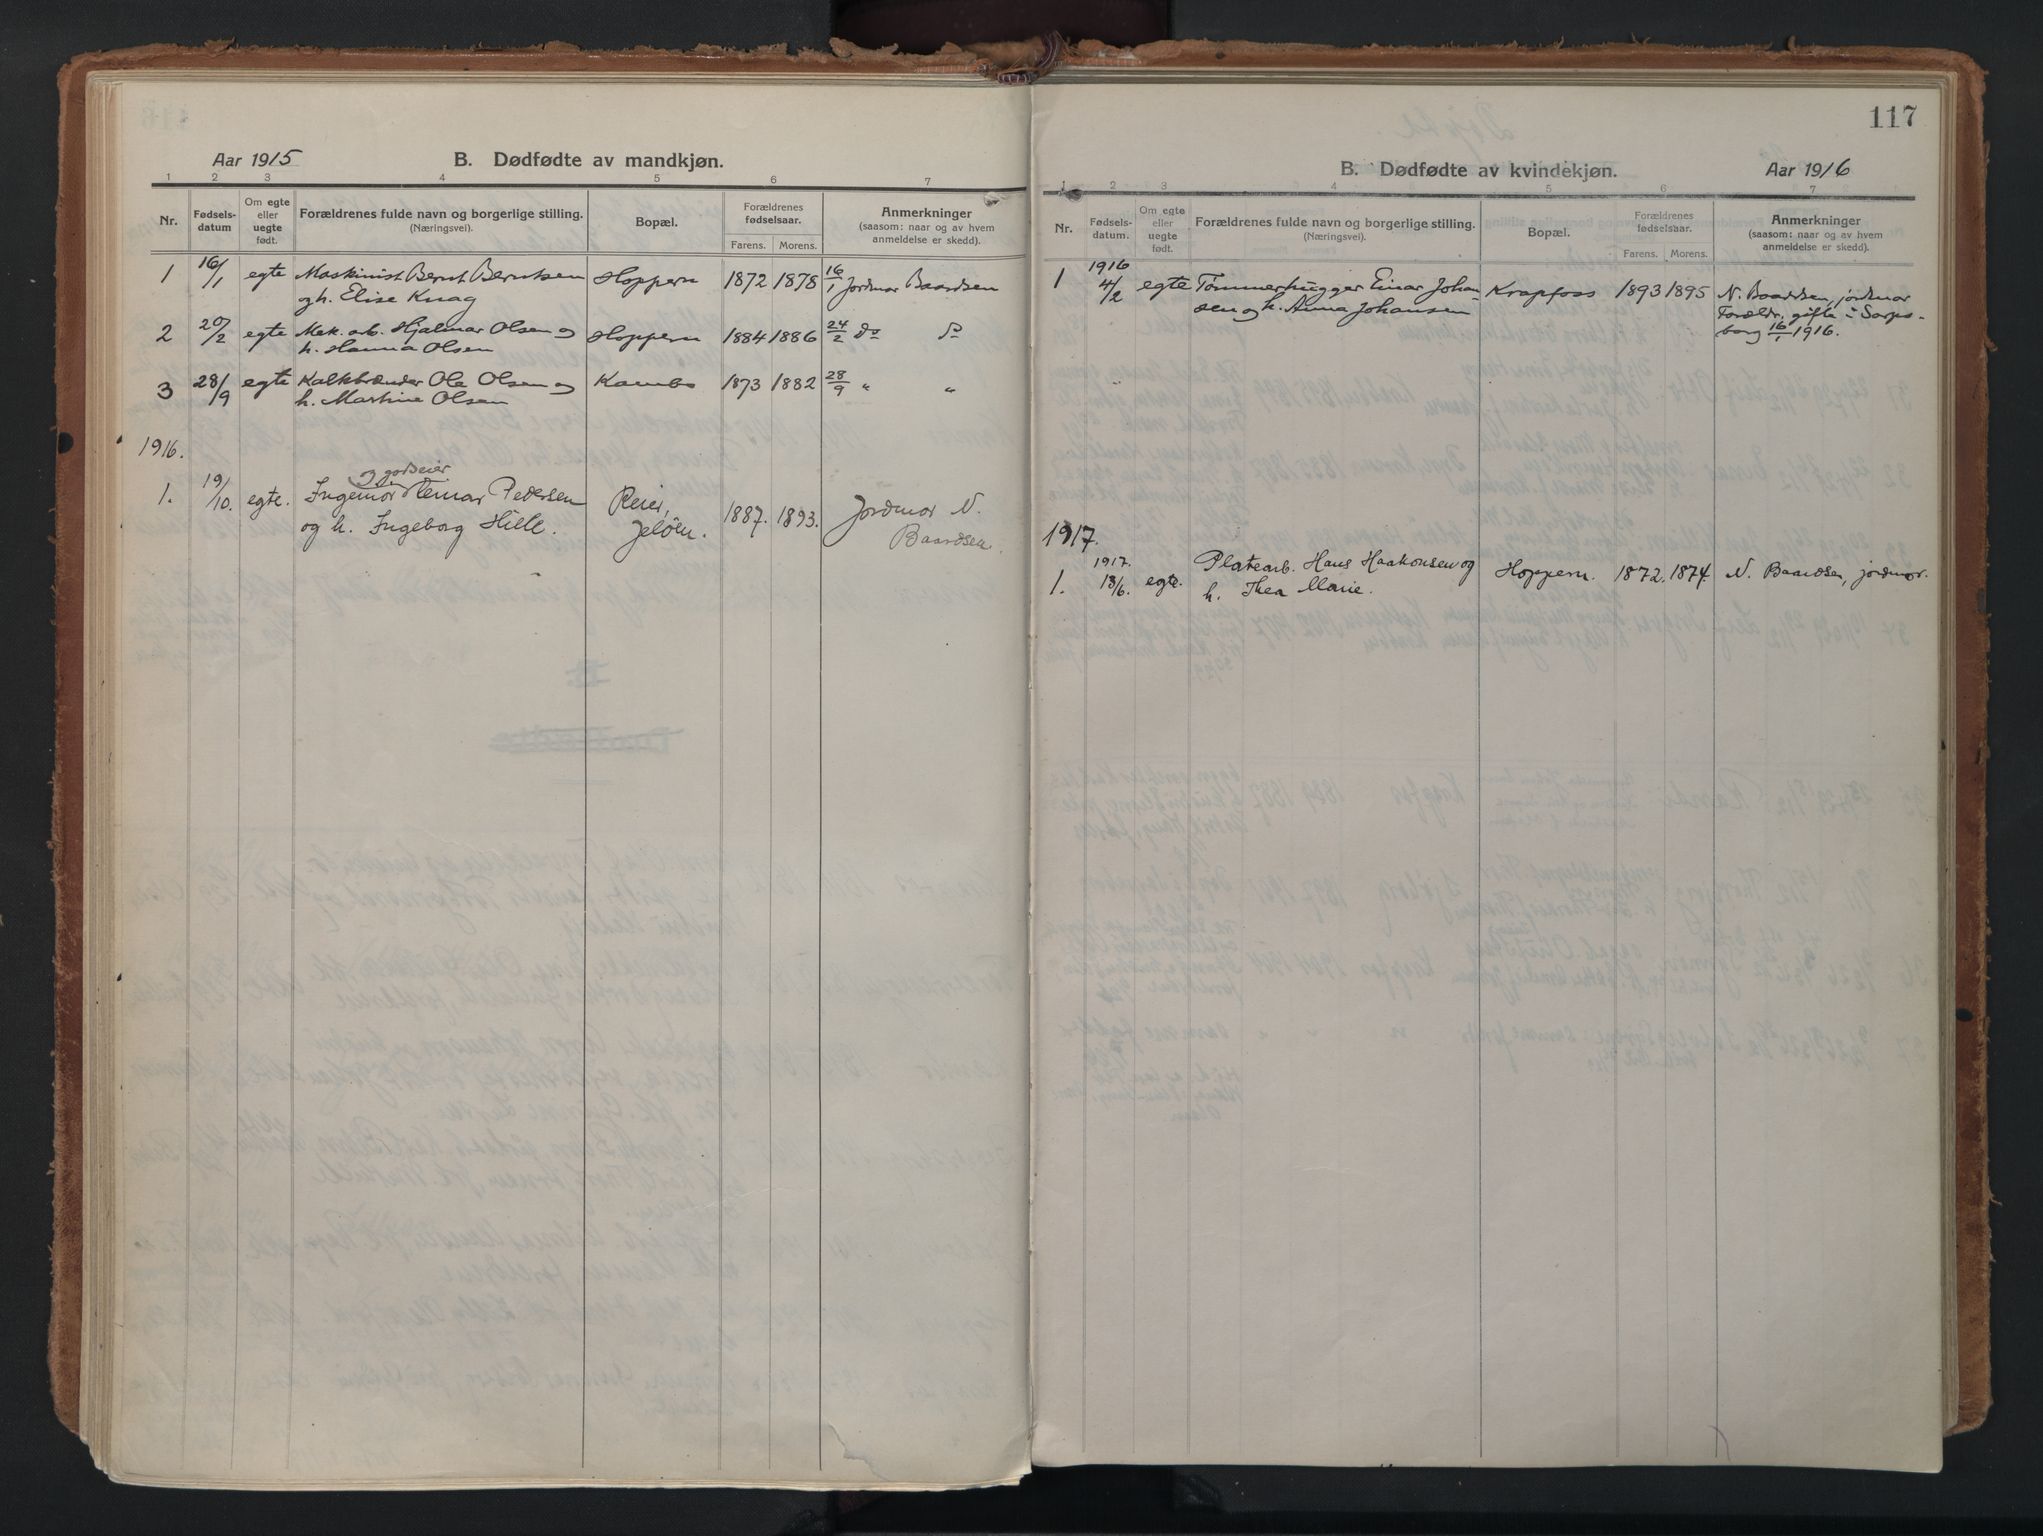 Aar 1915 B. Dødfødte av mandkjøn.
1 2 3 4 5 6 7
Nr. Fødsels-datum Om egte eller uegte født. Forældrenes fulde navn og borgerlige stilling. (Næringsvei). Bopæl. Forældrenes fødselsaar. Farens. Morens. Anmerkninger (saasom: naar og av hvem anmeldelse er skedd).
1 16/1 egte Maskinist Bernt Berntsen Hoppern 1872 1878 16/1 Jordmor Baardsen
og h. Elise Knag
2 20/2 egte Mek. arb. Hjalmar Olsen og Hoppern 1884 1886 24/2 do do
h. Hanna Olsen
3 28/9 egte Kalkbrænder Ole Olsen og Kambo 1873 1882 28/9 " "
h. Martine Olsen
1916.
og godseier
1. 19/10. egte. Ingeniør Reinar Pedersen Reier, 1887. 1893. Jordmor N.
og h. Ingeborg Hille. Jeløen. Baardsen.
117
B. Dødfødte av kvindekjøn. Aar 1916
1 2 3 4 5 6 7
Nr. Fødsels-datum. Om egte eller uegte født. Forældrenes fulde navn og borgerlige stilling. (Næringsvei). Bopæl. Forældrenes fødselsaar. Farens. Morens. Anmerkninger (saasom: naar og av hvem anmeldelse er skedd).
1916
1 4/2 egte Tømmerhugger Einar Johan- Krapfoss 1893 1895 N. Baardsen, jordmor
sen og h. Anna Johansen Forældr. gifte i Sarps-
borg 16/1 1916.
1917.
1917.
1. 13/6. egte. Platearb. Hans Haakonsen og Hoppern. 1872. 1874. N. Baardsen, jordmor.
h. Thea Marie.